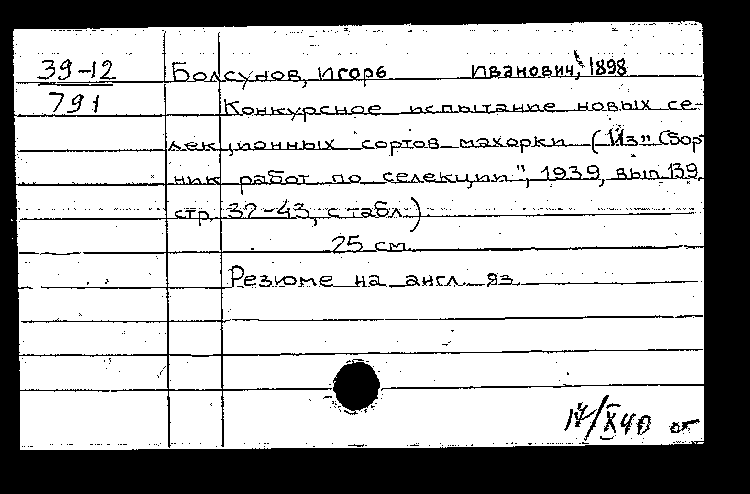 39-12 Болсунов, Игорь Иванович, 1898
791 Конкурсное испытание новых се-
лекционных сортов махорки (Из „Сбор
ник работ по селекции", 1939, вып 139,
стр 32-43, с табл.)
25 см.
Резюме на англ. яз.
17/X 40